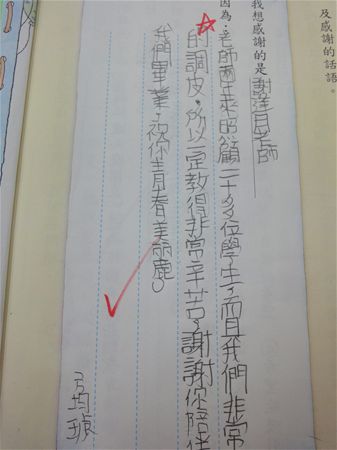 及感謝的話語。
我想感謝的是謝月老師
因為，老師要來照顧二十多位學生，而且我們非常
的調皮，所以一定教得非常辛苦，謝謝你陪伴
我們畢業，祝你青春美麗。
均